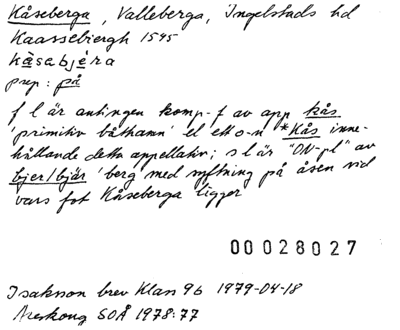 Kåseberga, Valleberga, Ingelstads hd
Kaassebiergh 1545
kåsebjéra
prep: på
f l är antingen komp-f av app kås
'primitiv båthamn' el ett o-n *Kås inne-
hållande detta appellativ; s l är "ON-pl" av
bjer/bjär 'berg' med syftning på åsen vid
vars fot Kåseberga ligger
00028027
Isakson brev Klan 96 1979-04-18
Areskoug SOÅ 1978:77